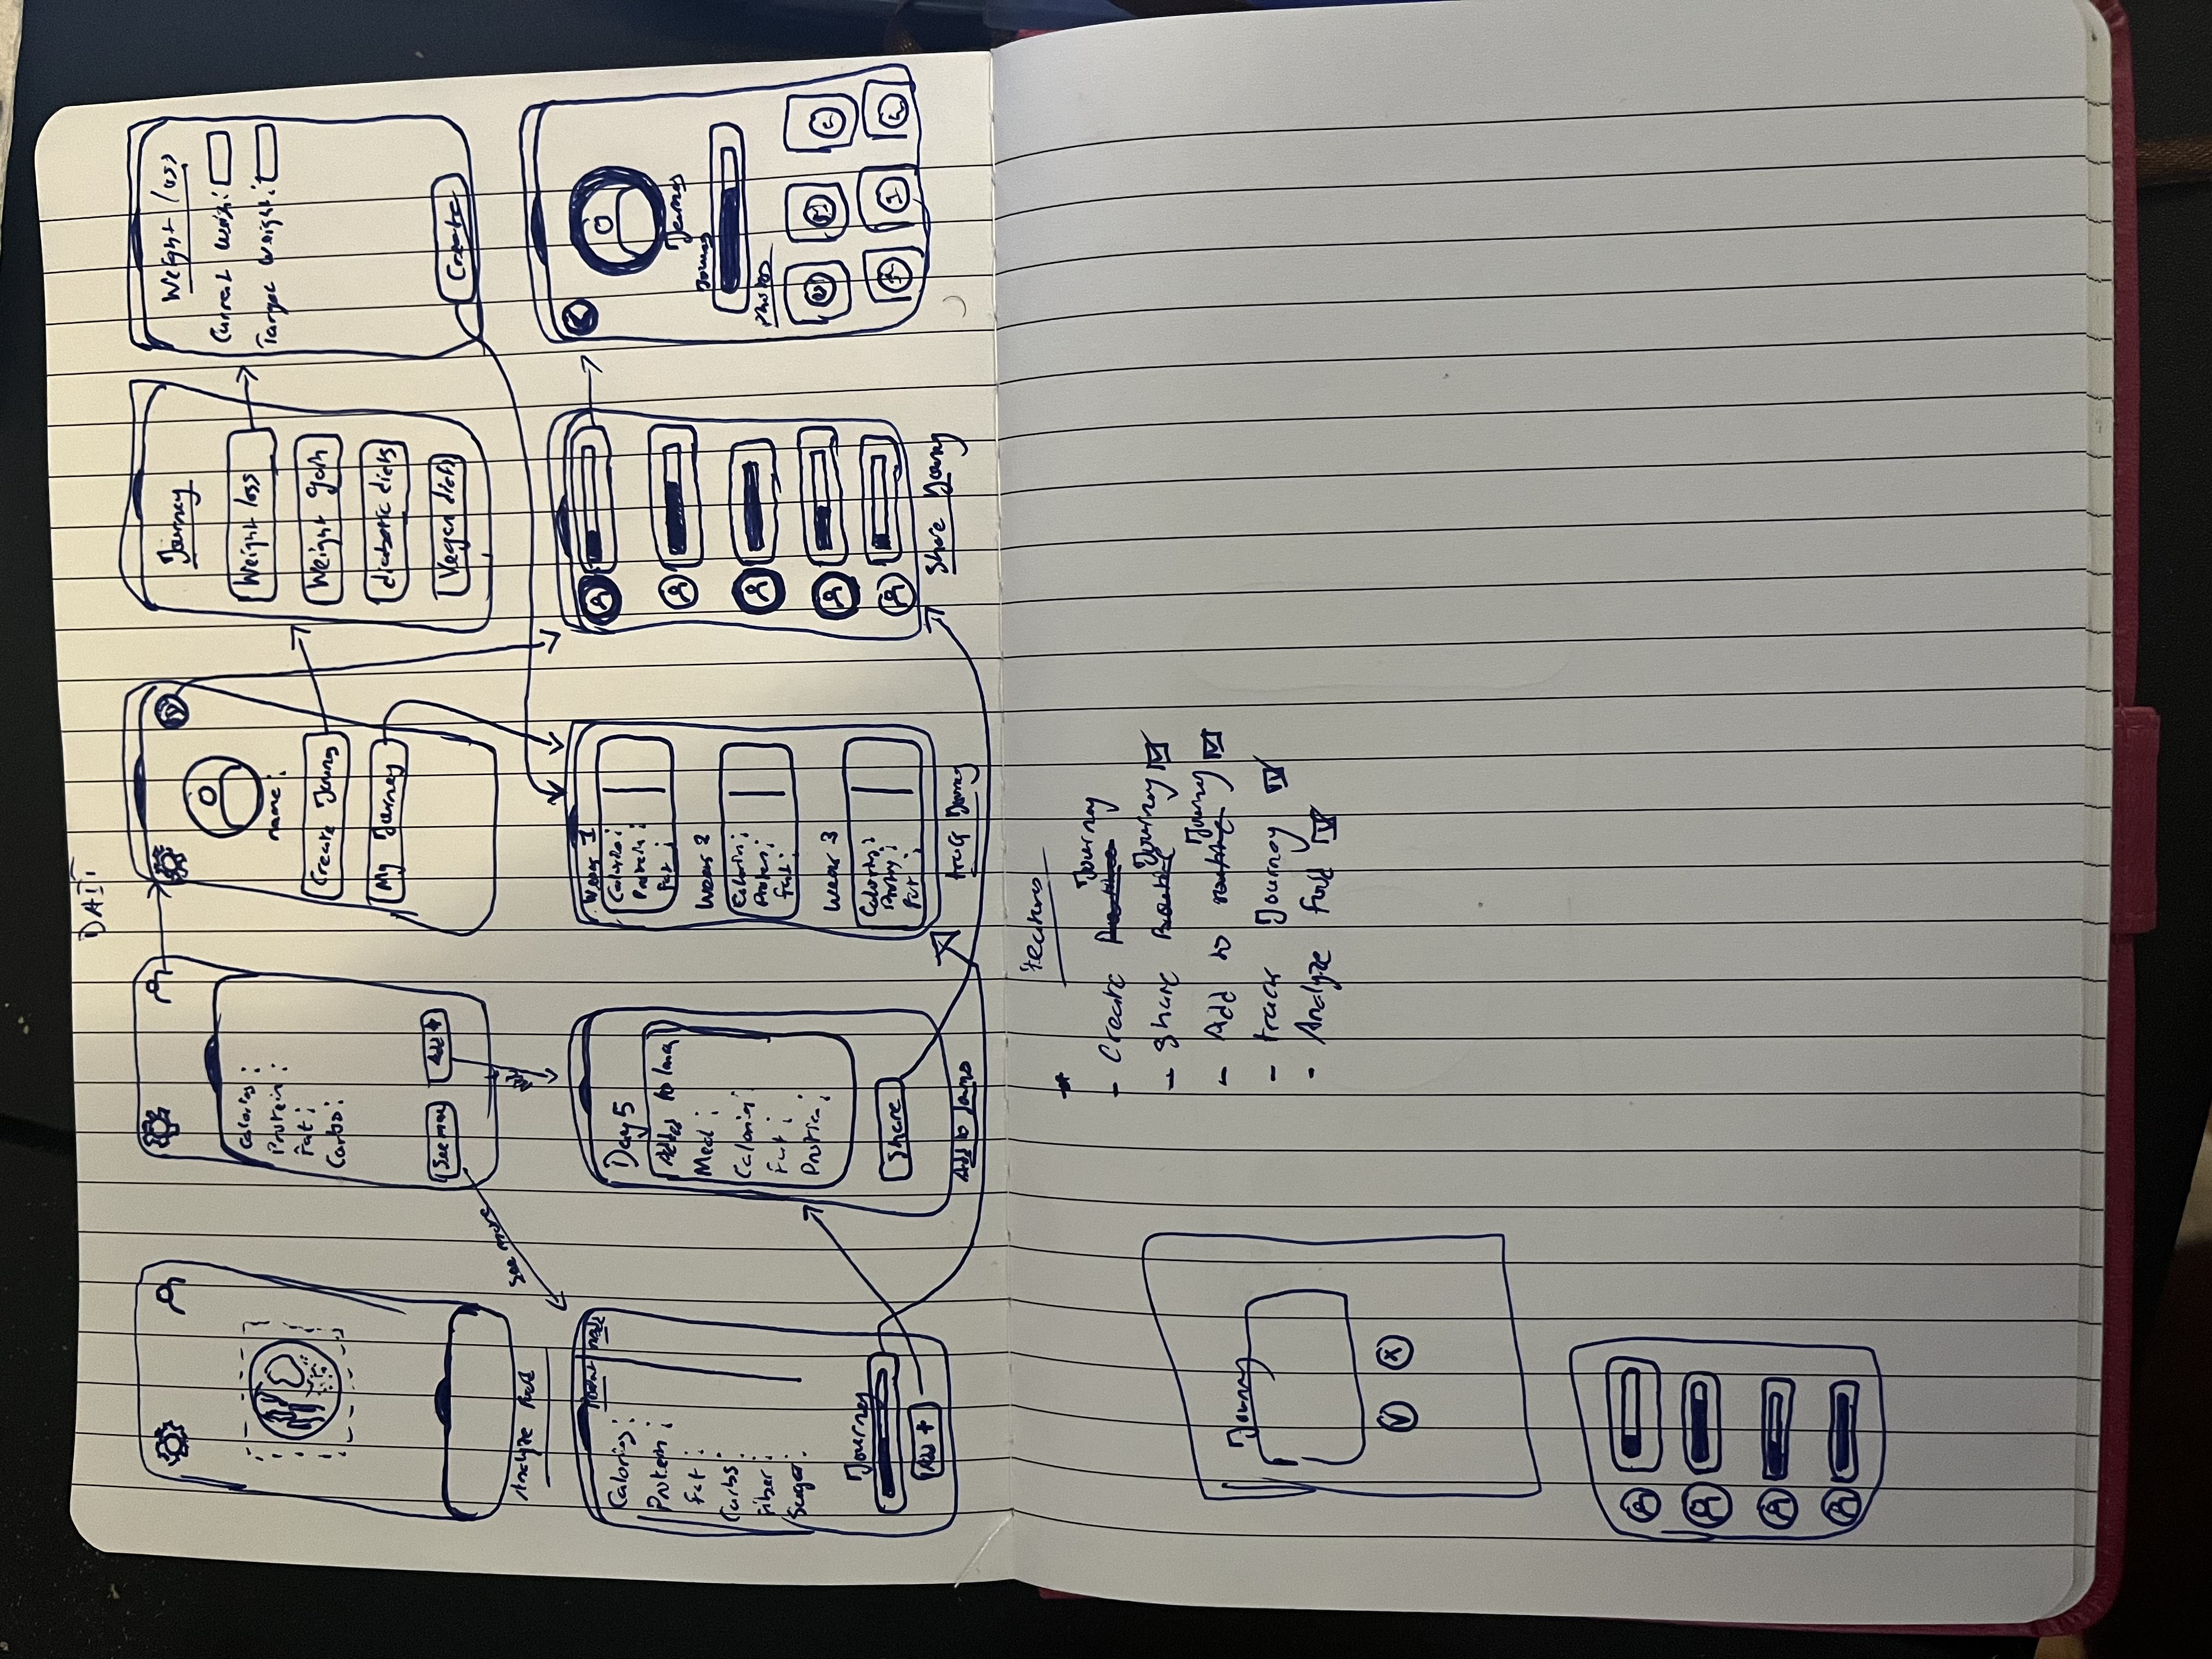 Calories :
Protein :
Fat :
Carbo :
See more
Add +
name :
Create Journey
My Journey
Journey
Weight loss
Weight gain
diabetic diets
Vegan diets
Weight loss
Current weigh :
Target weight :
Create
Analyze food
See more
Calories :
Protein :
Fat :
Carbs :
Fiber :
Sugar :
Journey
Add +
Day 5
Added to
Meal :
Calories :
Fat :
Protein :
Share
Add to
1
Calories :
Protein :
Fat :
2
Calories :
Protein :
Fat :
3
Fat :
Share Journey
Journey
Photos
features
- Create Journey
- Share Journey
- Add to Journey
- track Journey
- Analyze food
Journey